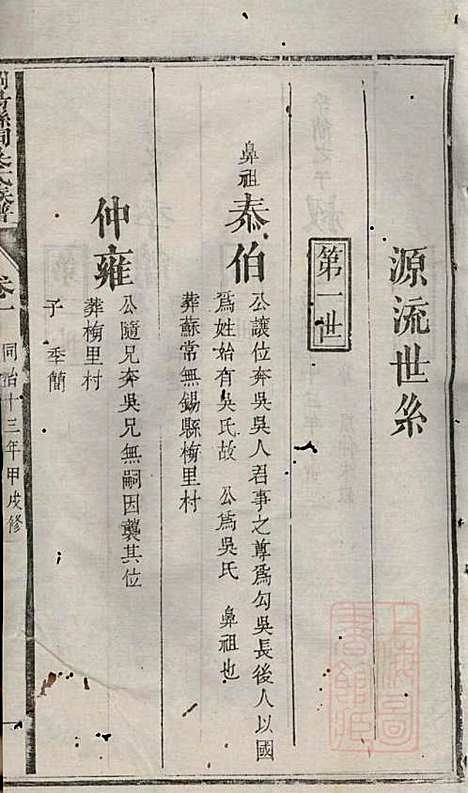 源流世系
第一世
鼻祖 泰伯
公讓位奔吳吳人君事之尊爲勾吳長後人以國
爲姓始有吳氏故 公爲吳氏 鼻祖也
葬蘇常無錫縣梅里村
仲雍
公隨兄奔吳兄無嗣因襲其位
葬梅里村
子 季簡
氏族譜
卷一
同治十三年甲戌修